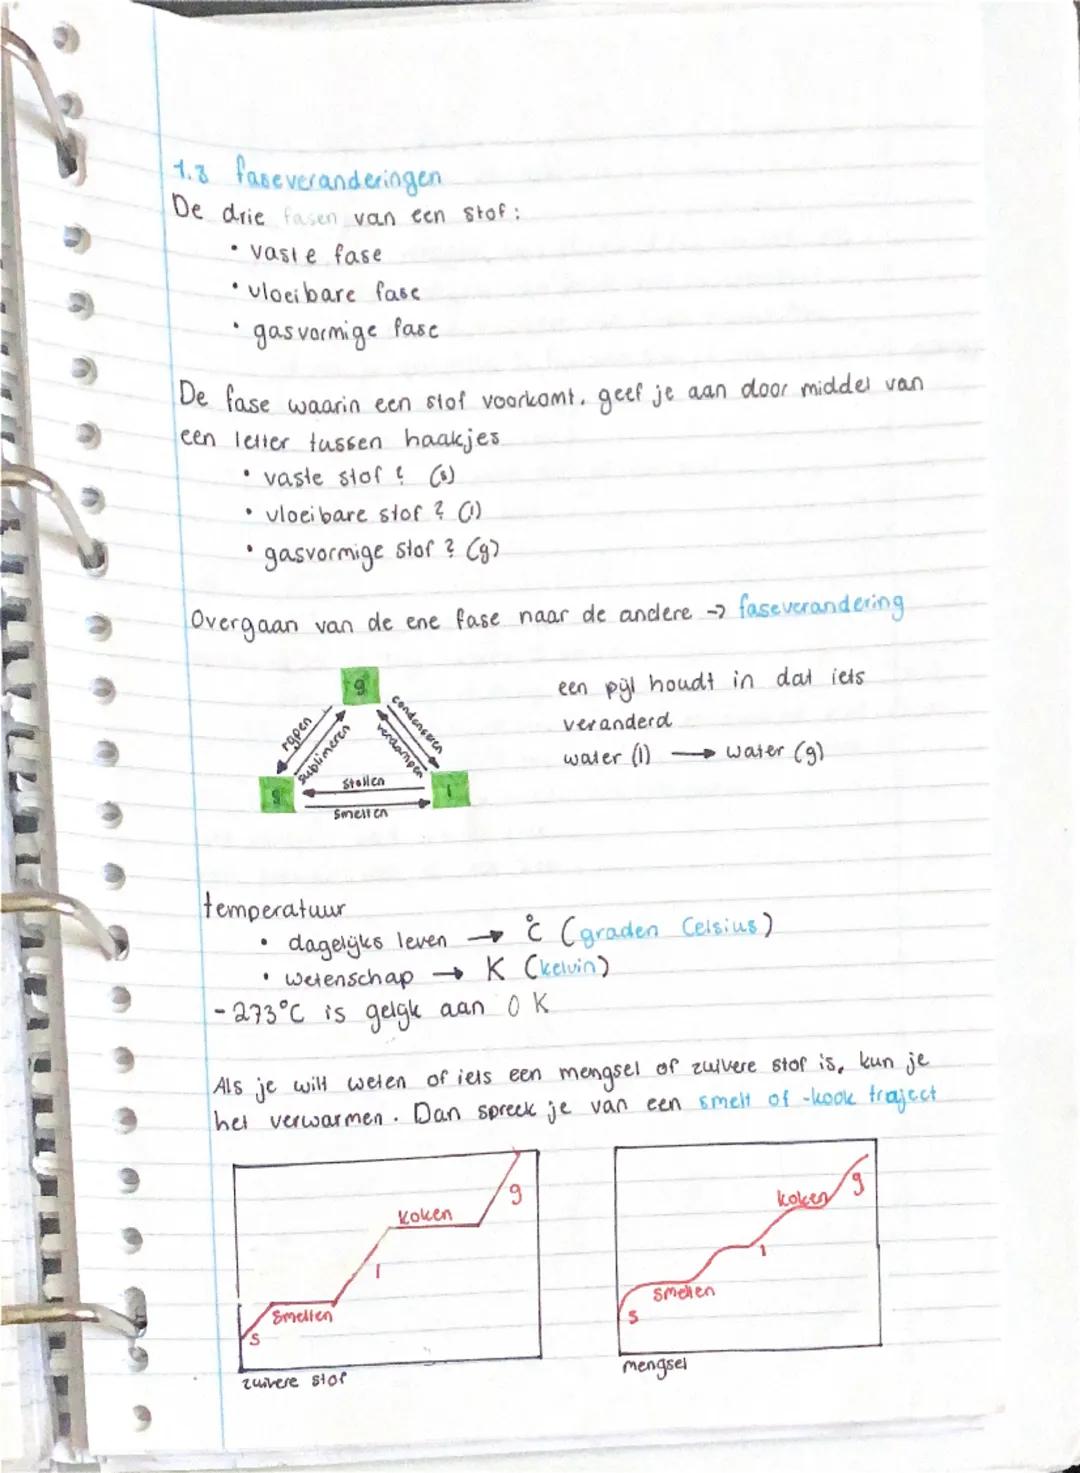 1.3 faseveranderingen
De drie fasen van een stof:
• vaste fase
• vloeibare fase
• gasvormige fase
De fase waarin een stof voorkomt, geef je aan door middel van
een letter tussen haakjes
• vaste stof ? (s)
• vloeibare stof ? (l)
• gasvormige stof ? (g)
Overgaan van de ene fase naar de andere → faseverandering
g
rijpen
sublimeren
condenseren
verdampen
s
stollen
l
smelten
een pijl houdt in dat iets
veranderd
water (l) → water (g)
temperatuur
• dagelijks leven → °C (graden Celsius)
• wetenschap → K (kelvin)
-273°C is gelijk aan 0 K
Als je wilt weten of iets een mengsel of zuivere stof is, kun je
het verwarmen. Dan spreek je van een smelt of -kook traject
s
smelten
l
koken
g
zuivere stof
s
smelten
l
koken
g
mengsel